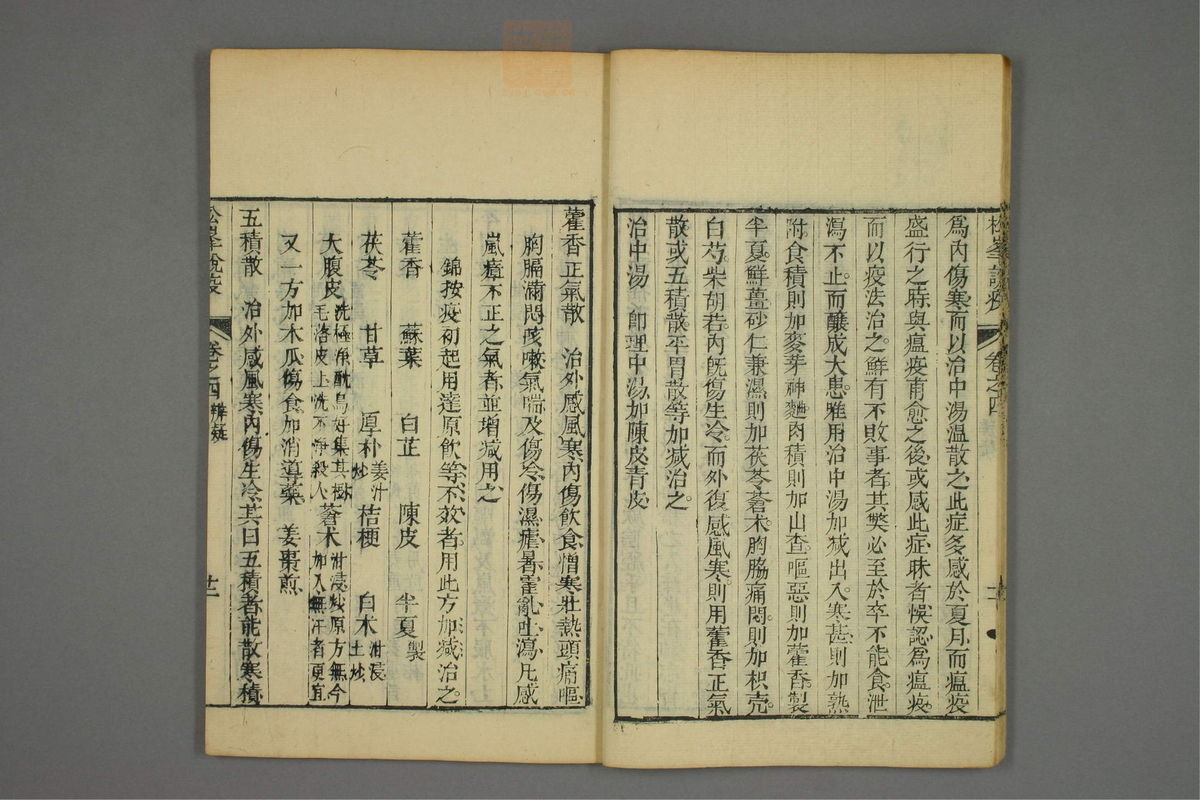 松峯說疫 卷之四
爲內傷寒而以治中湯溫散之此症多感於夏月而瘟疫
盛行之時與瘟疫甫愈之後或感此症昧者悞認爲瘟疫
而以疫法治之鮮有不敗事者其弊必至於卒不能食泄
瀉不止而釀成大患惟用治中湯加減出入寒甚則加熟
附食積則加麥芽神麯肉積則加山查嘔惡則加藿香製
半夏鮮薑砂仁兼濕則加茯苓蒼朮胸脇痛悶則加枳壳
白芍柴胡若內旣傷生冷而外復感風寒則用藿香正氣
散或五積散平胃散等加減治之
治中湯 卽理中湯加陳皮青皮
藿香正氣散 治外感風寒內傷飲食憎寒壯熱頭痛嘔
胸膈滿悶咳嗽氣喘及傷冷傷濕瘧暑霍亂吐瀉凡感
嵐瘴不正之氣者並增減用之
錦按疫初起用達原飲等不效者用此方加減治之
藿香 蘇葉 白芷 陳皮 半夏製
茯苓 甘草 厚朴姜汁炒 桔梗 白术泔浸土炒
大腹皮洗極淨酖鳥好集其樹毛落皮上洗不淨殺人 蒼术泔浸炒原方無今加入無汗者更宜
又一方加木瓜傷食加消導藥 姜棗煎
五積散 治外感風寒內傷生冷其曰五積者能散寒積
松峯說疫 卷之四 辨疑 廿二